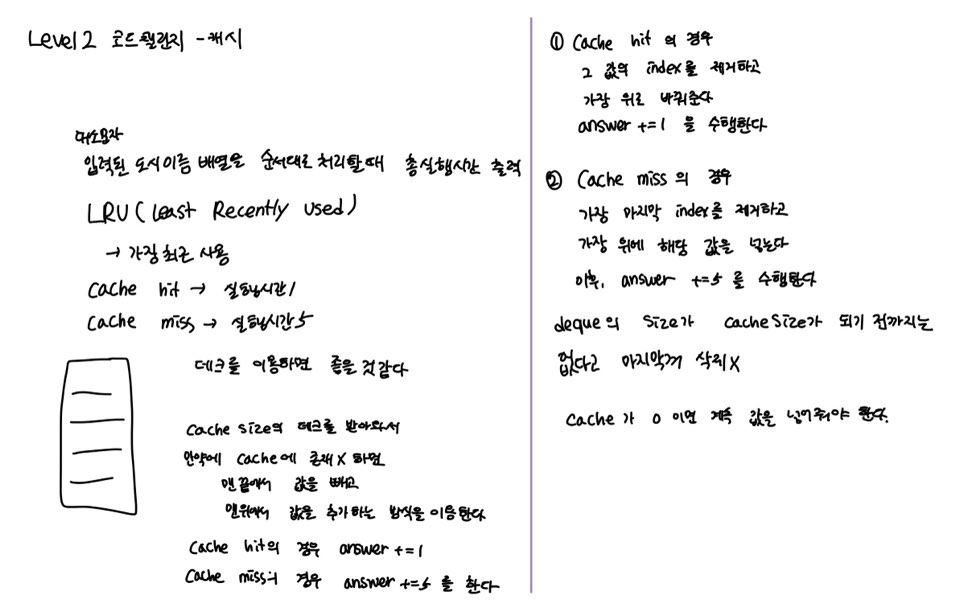 Level 2 코드챌린지 - 캐시
대소문자
입력된 도시이름 배열을 순서대로 처리할때 총실행시간 출력
LRU (Least Recently Used)
→ 가장 최근 사용
Cache hit → 실행시간 1
Cache miss → 실행시간 5
데크를 이용하면 좋을 것 같다
Cache size의 데크를 받아와서
만약에 Cache에 존재 X 하면
맨 끝에서 값을 빼고
맨위에서 값을 추가하는 방식을 이용한다
Cache hit의 경우 answer += 1
Cache miss의 경우 answer += 5 를 한다
① Cache hit 의 경우
그 값의 index를 제거하고
가장 위로 바꿔준다
answer += 1 을 수행한다
② Cache miss 의 경우
가장 마지막 index를 제거하고
가장 위에 해당 값을 넣는다
이후, answer += 5 를 수행한다
deque의 Size가 cacheSize가 되기 전까지는
없다고 마지막꺼 삭제 X
Cache 가 0 이면 계속 값을 넣어줘야 한다.